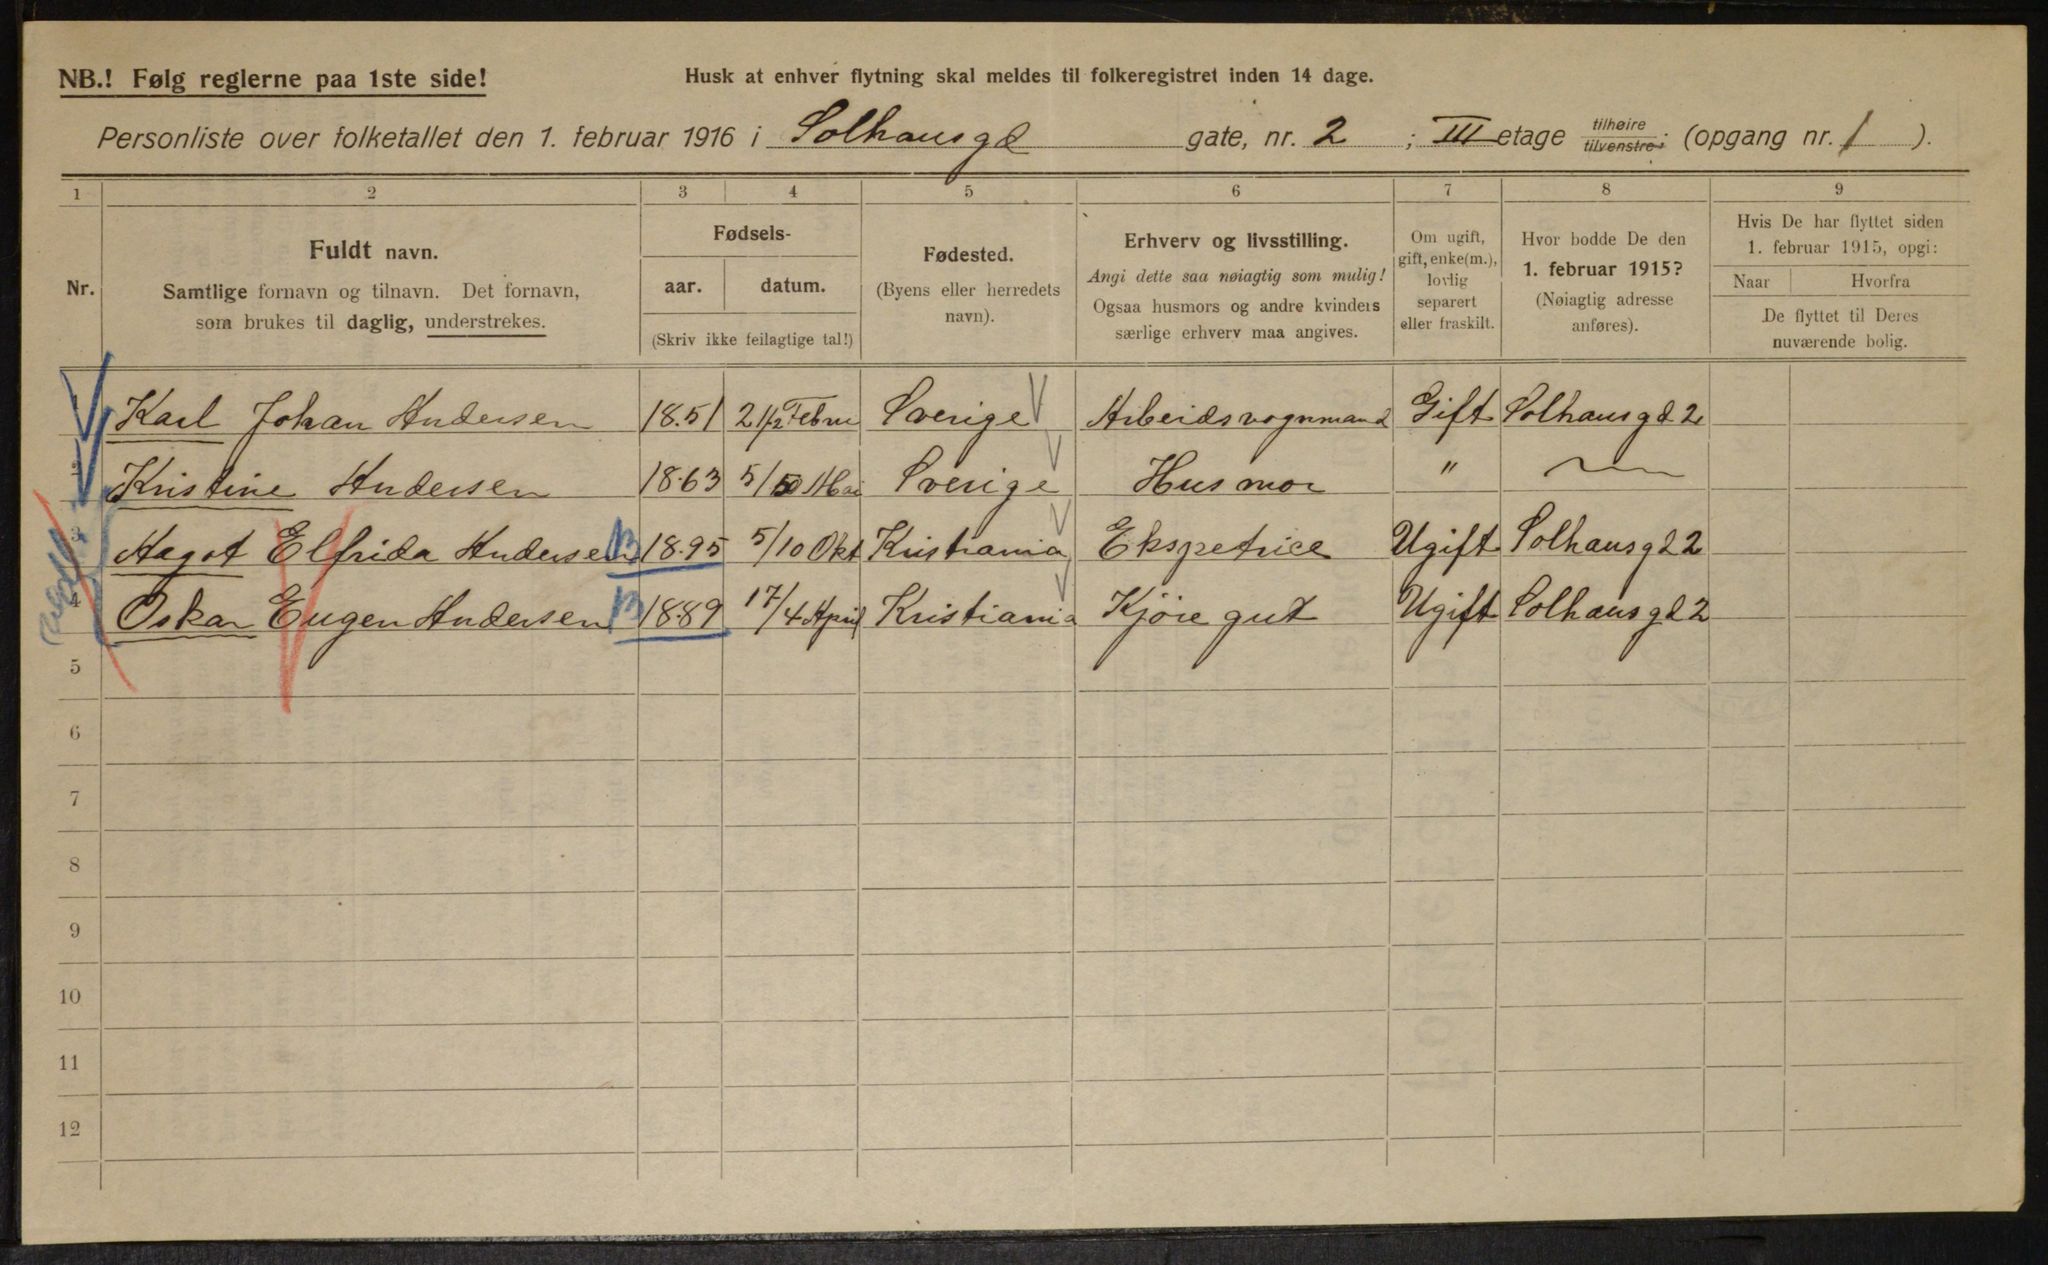 NB.! Følg reglerne paa 1ste side!
Husk at enhver flytning skal meldes til folkeregistret inden 14 dage.
Personliste over folketallet den 1. februar 1916 i Solhausgd gate, nr. 2 ; III etage tilhøire tilvenstre; (opgang nr. 1 ).
1 2 3 4 5 6 7 8 9
Nr.
Fuldt navn.
Samtlige fornavn og tilnavn. Det fornavn,
som brukes til daglig, understrekes.
Fødsels-
aar. datum.
(Skriv ikke feilagtige tal!)
Fødested.
(Byens eller herredets
navn).
Erhverv og livsstilling.
Angi dette saa nøiagtig som mulig!
Ogsaa husmors og andre kvinders
særlige erhverv maa angives.
Om ugift,
gift, enke(m.),
lovlig
separert
eller fraskilt.
Hvor bodde De den
1. februar 1915?
(Nøiagtig adresse
anføres).
Hvis De har flyttet siden
1. februar 1915, opgi:
Naar Hvorfra
De flyttet til Deres
nuværende bolig.
Karl Johan Andersen 1851 2/12 Febru Sverige Arbeidsvognmand Gift Solhausgd 2
Kristine Andersen 1863 5/5 Mai Sverige Husmor "
3 Aagot Elfrida Andersen 1895 5/10 Okt Kristiania Ekspetrice Ugift Solhausgd 2
4 Oskar Eugen Andersen 1889 17/4 April Kristiania Kjøregut Ugift Solhausgd 2
5
6
7
8
9
10
11
12